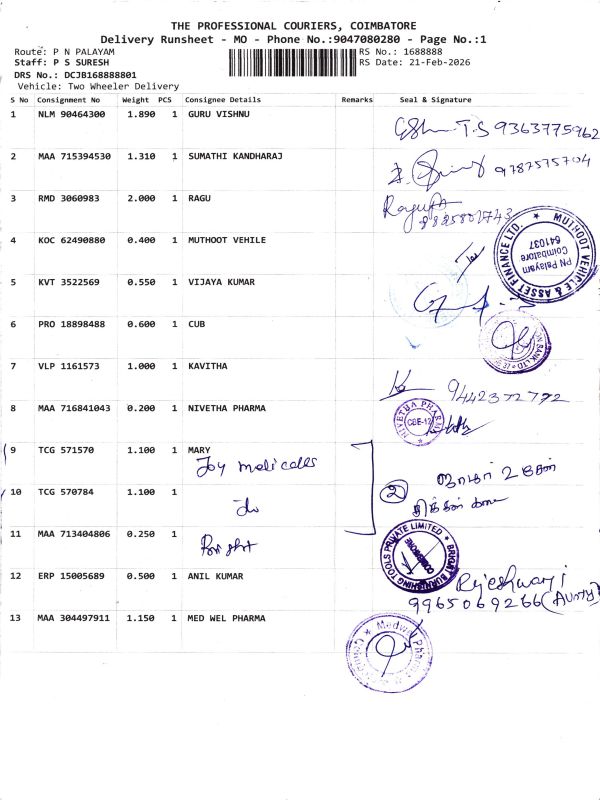 THE PROFESSIONAL COURIERS, COIMBATORE
Delivery Runsheet - MO - Phone No.:9047080280 - Page No.:1
Route: P N PALAYAM
RS No.: 1688888
Staff: P S SURESH
RS Date: 21-Feb-2026
DRS No.: DCJB168888801
Vehicle: Two Wheeler Delivery
S No Consignment No Weight PCS Consignee Details Remarks Seal & Signature
1 NLM 90464300 1.890 1 GURU VISHNU
T.S 9363775962
2 MAA 715394530 1.310 1 SUMATHI KANDHARAJ
9787575704
3 RMD 3060983 2.000 1 RAGU
4 KOC 62490880 0.400 1 MUTHOOT VEHILE
MUTHOOT VEHICLE & ASSET FINANCE LTD.
PN Palayam
Coimbatore
641037
5 KVT 3522569 0.550 1 VIJAYA KUMAR
6 PRO 18898488 0.600 1 CUB
7 VLP 1161573 1.000 1 KAVITHA
9442372772
8 MAA 716841043 0.200 1 NIVETHA PHARMA
NIVETHA PHARMA
CBE-12
9 TCG 571570 1.100 1 MARY
Joy medicals
10 TCG 570784 1.100 1
Do
2
11 MAA 713404806 0.250 1
Bright
BRIGHT BURNISHING TOOLS PRIVATE LIMITED
COIMBATORE
12 ERP 15005689 0.500 1 ANIL KUMAR
Rajeshwari
9965069266 (Aunty)
13 MAA 304497911 1.150 1 MED WEL PHARMA